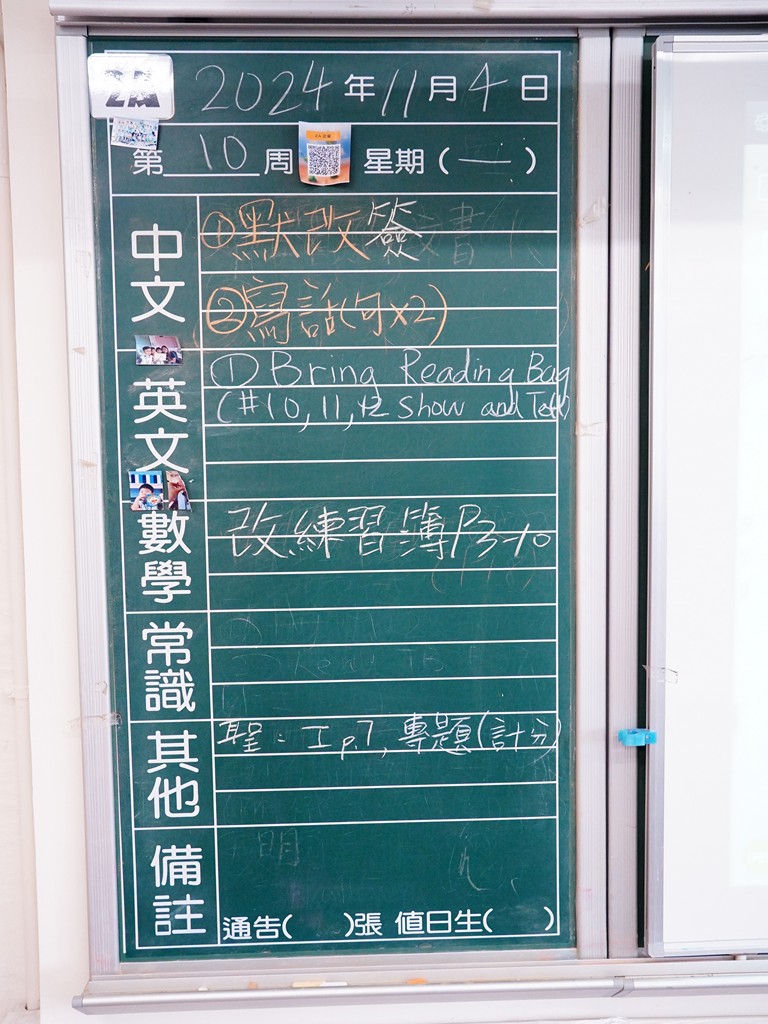 2A
2024年11月4日
第10周 星期(一)
中文
①默改簽
②寫話(句x2)
英文
① Bring Reading Bag
(#10, 11, 12 Show and Tell)
數學
改練習簿P3-10
常識
其他
聖: I p.7, 專題(計分)
備註
通告( )張 值日生( )